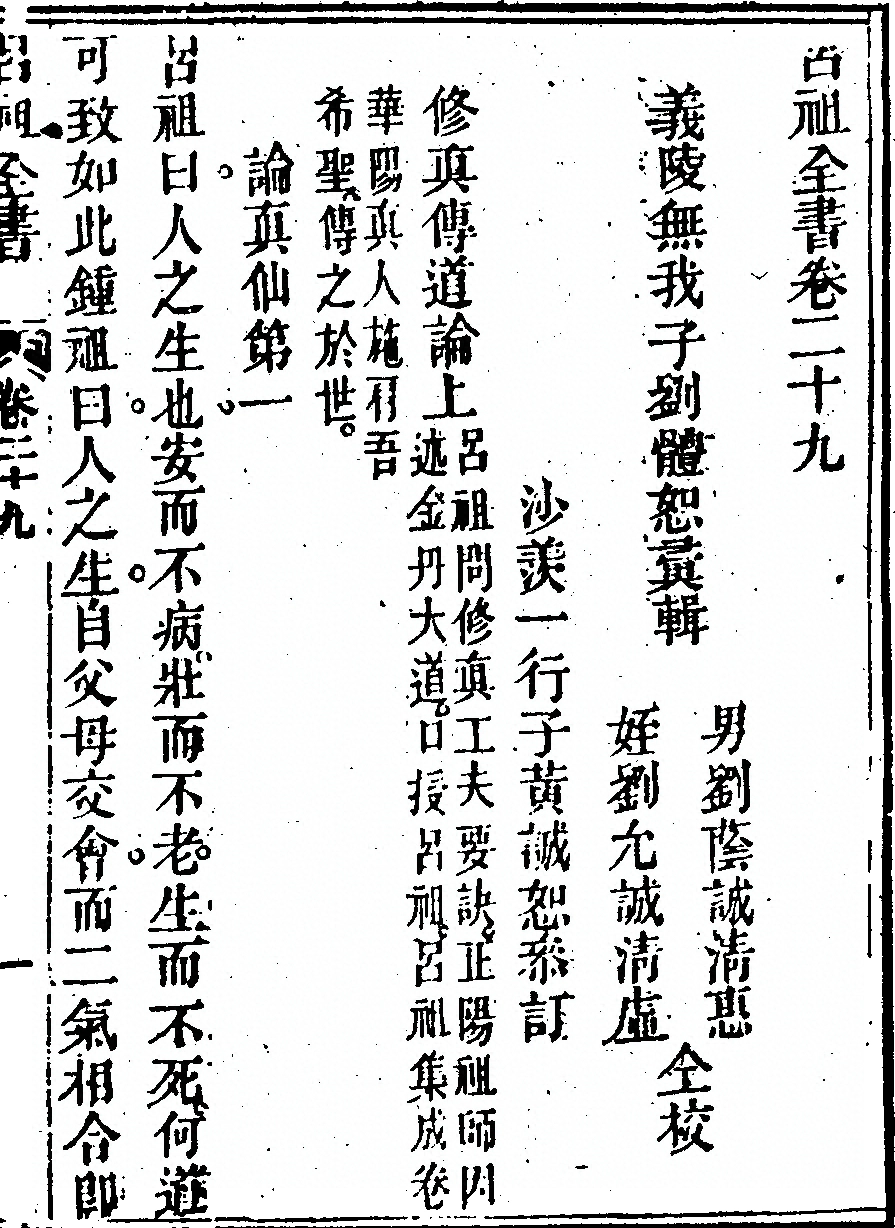 呂祖全書卷二十九
義陵無我子劉體恕彙輯
男劉蔭誠清惠
姪劉允誠清虛
仝校
沙羨一行子黃誠恕叅訂
修真傳道論上
呂祖問修真工夫要訣正陽祖師因
述金丹大道口授呂祖呂祖集成卷
華陽真人施肩吾
希聖傳之於世
論真仙第一
呂祖曰人之生也安而不病壯而不老生而不死何道
可致如此鍾祖曰人之生自父母交會而二氣相合即
呂祖全書
卷二十九
一